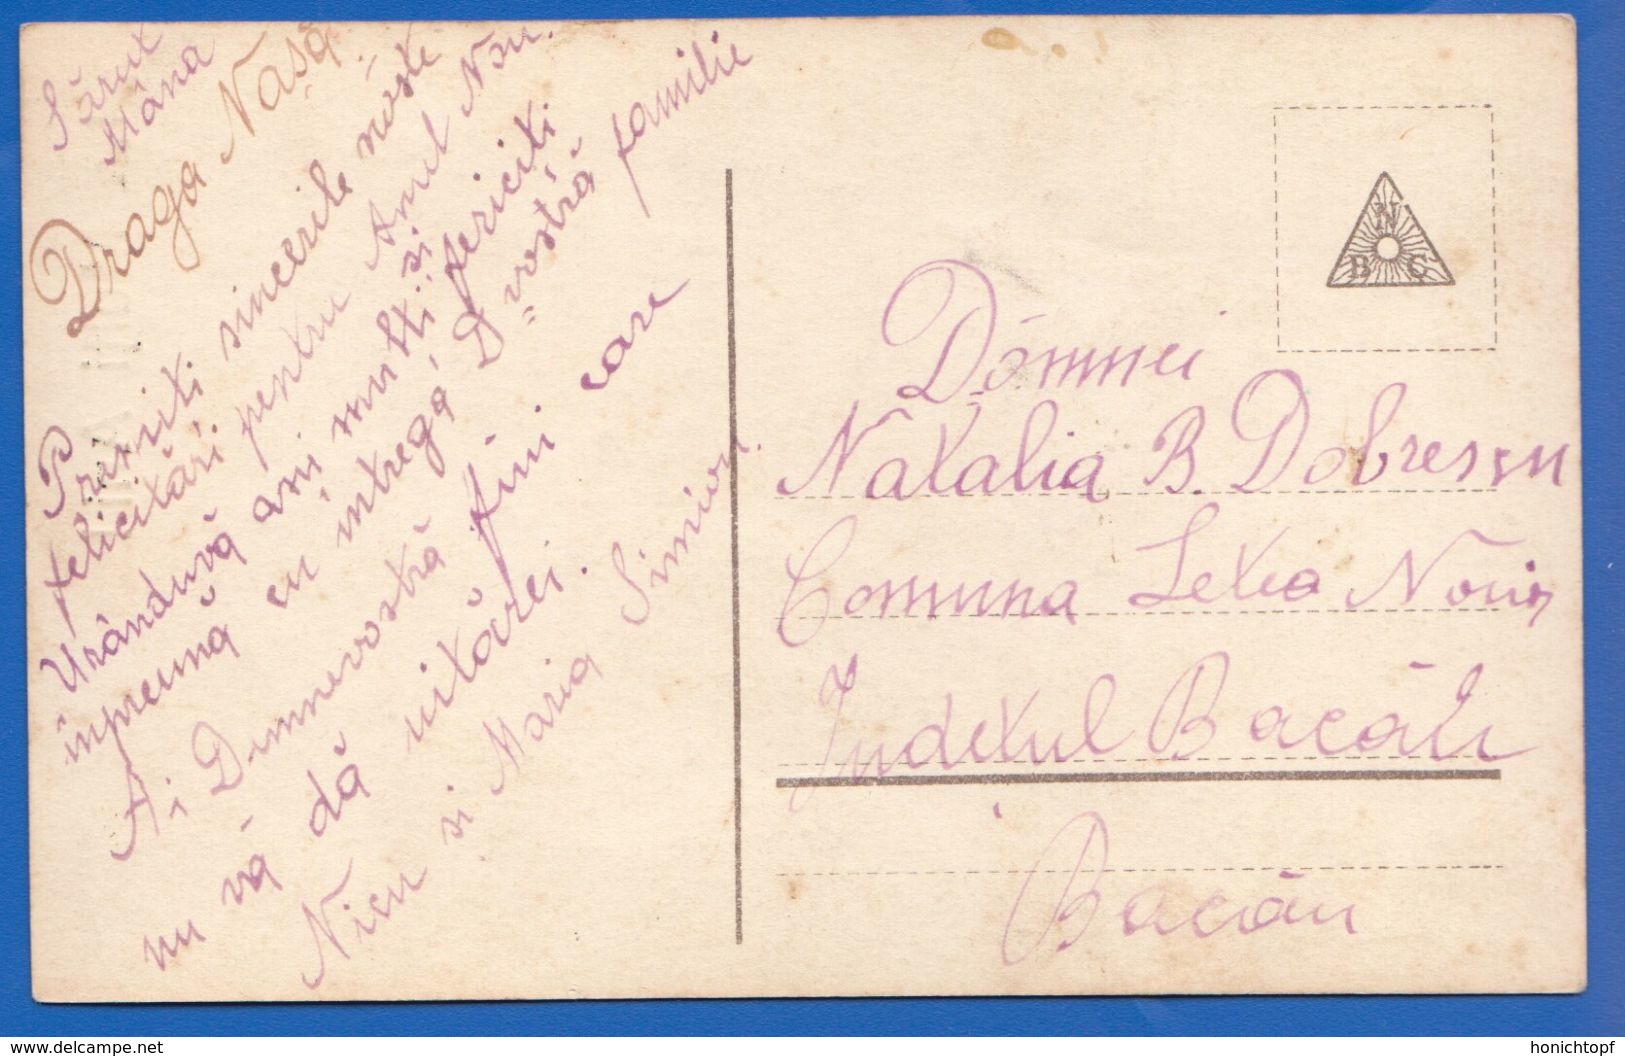 Sărut
Mâna
Draga Nașa
Primiti sincerile nóste
felicitări pentru Anul Nou.
Urânduvă ani multi si fericiti
împreună cu intregá D-vostră familie
Ai Dumnevostră fini care
nu vă dă uitărei.
Nicu si Maria Simion.
N
B C
Dómnei
Natalia B. Dobrescu
Comuna Letea Nouă
Judetul Bacău
Bacău
www.delcampe.net
honichtopf